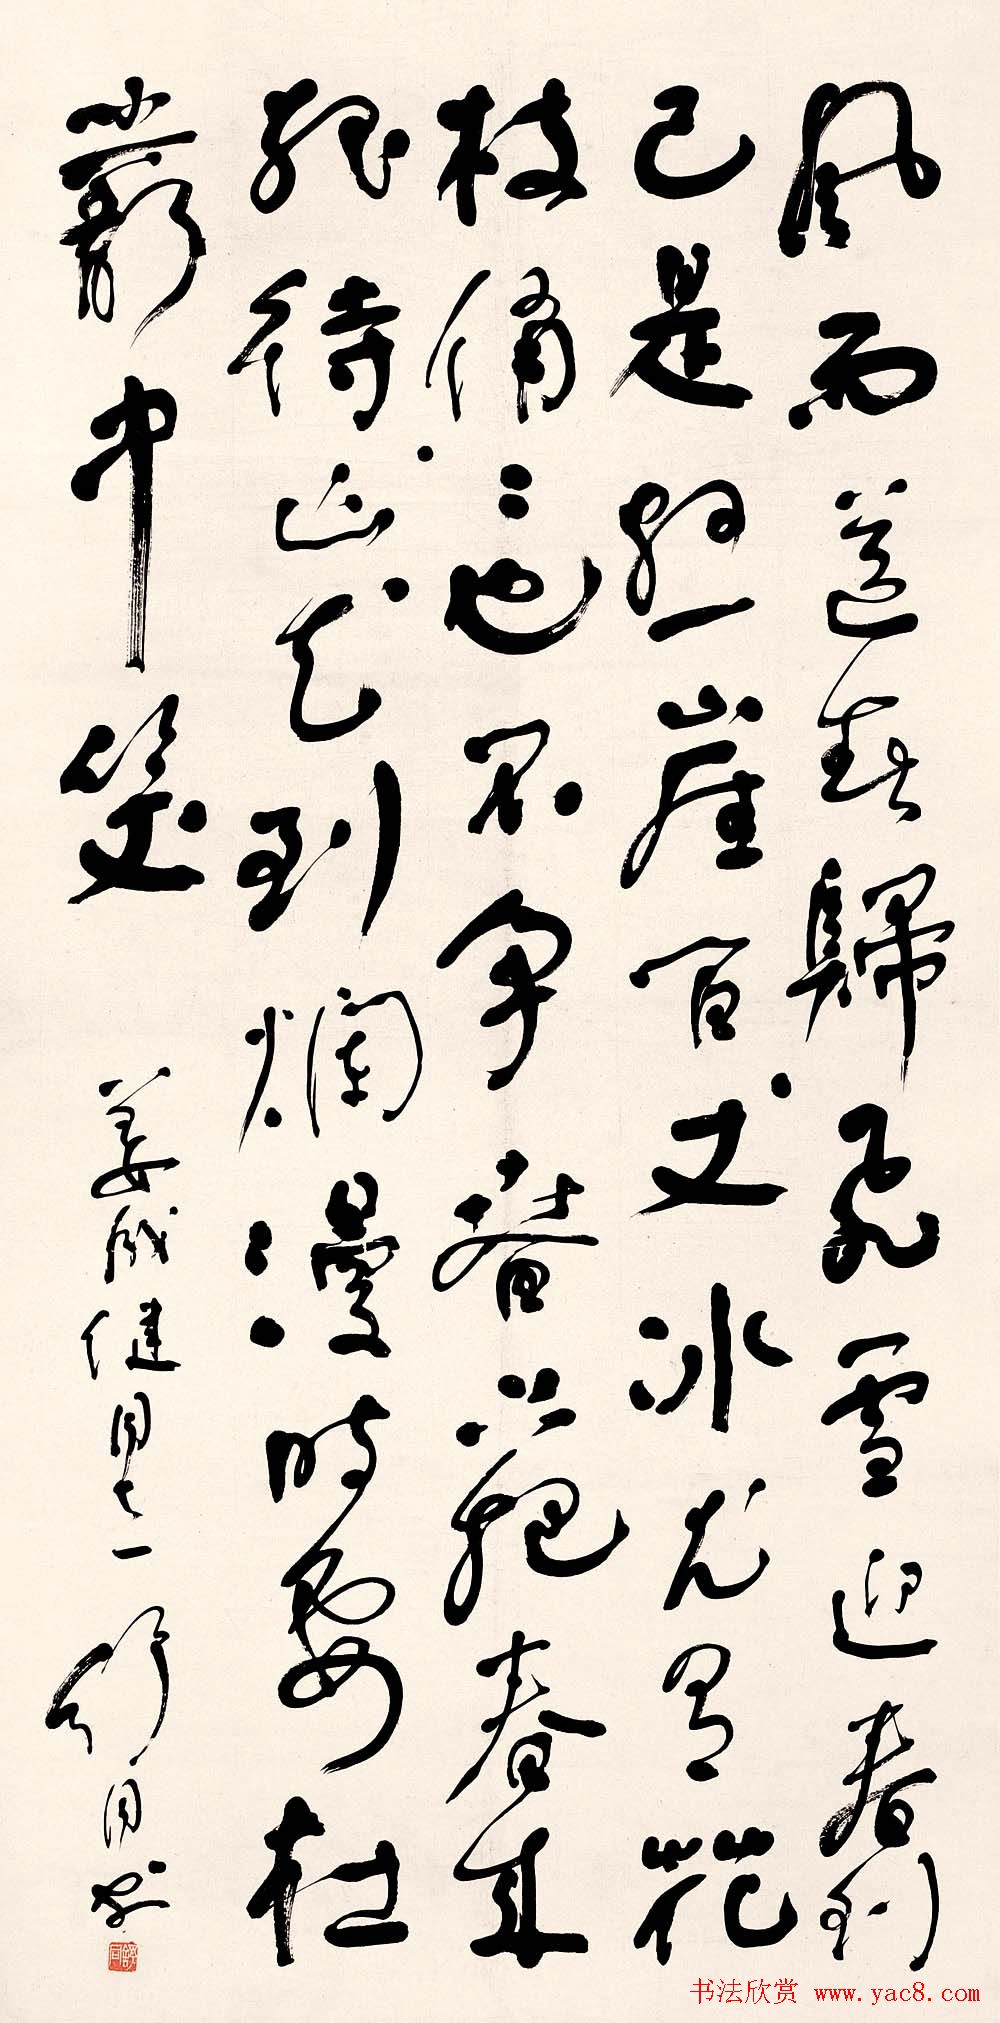 風雨送春歸飛雪迎春到
已是懸崖百丈冰尤有花
枝俏〻也不争春只把春来
報待山花到爛漫時她在
叢中笑
姜成健同志 舒同书
舒同
书法欣赏 www.yac8.com